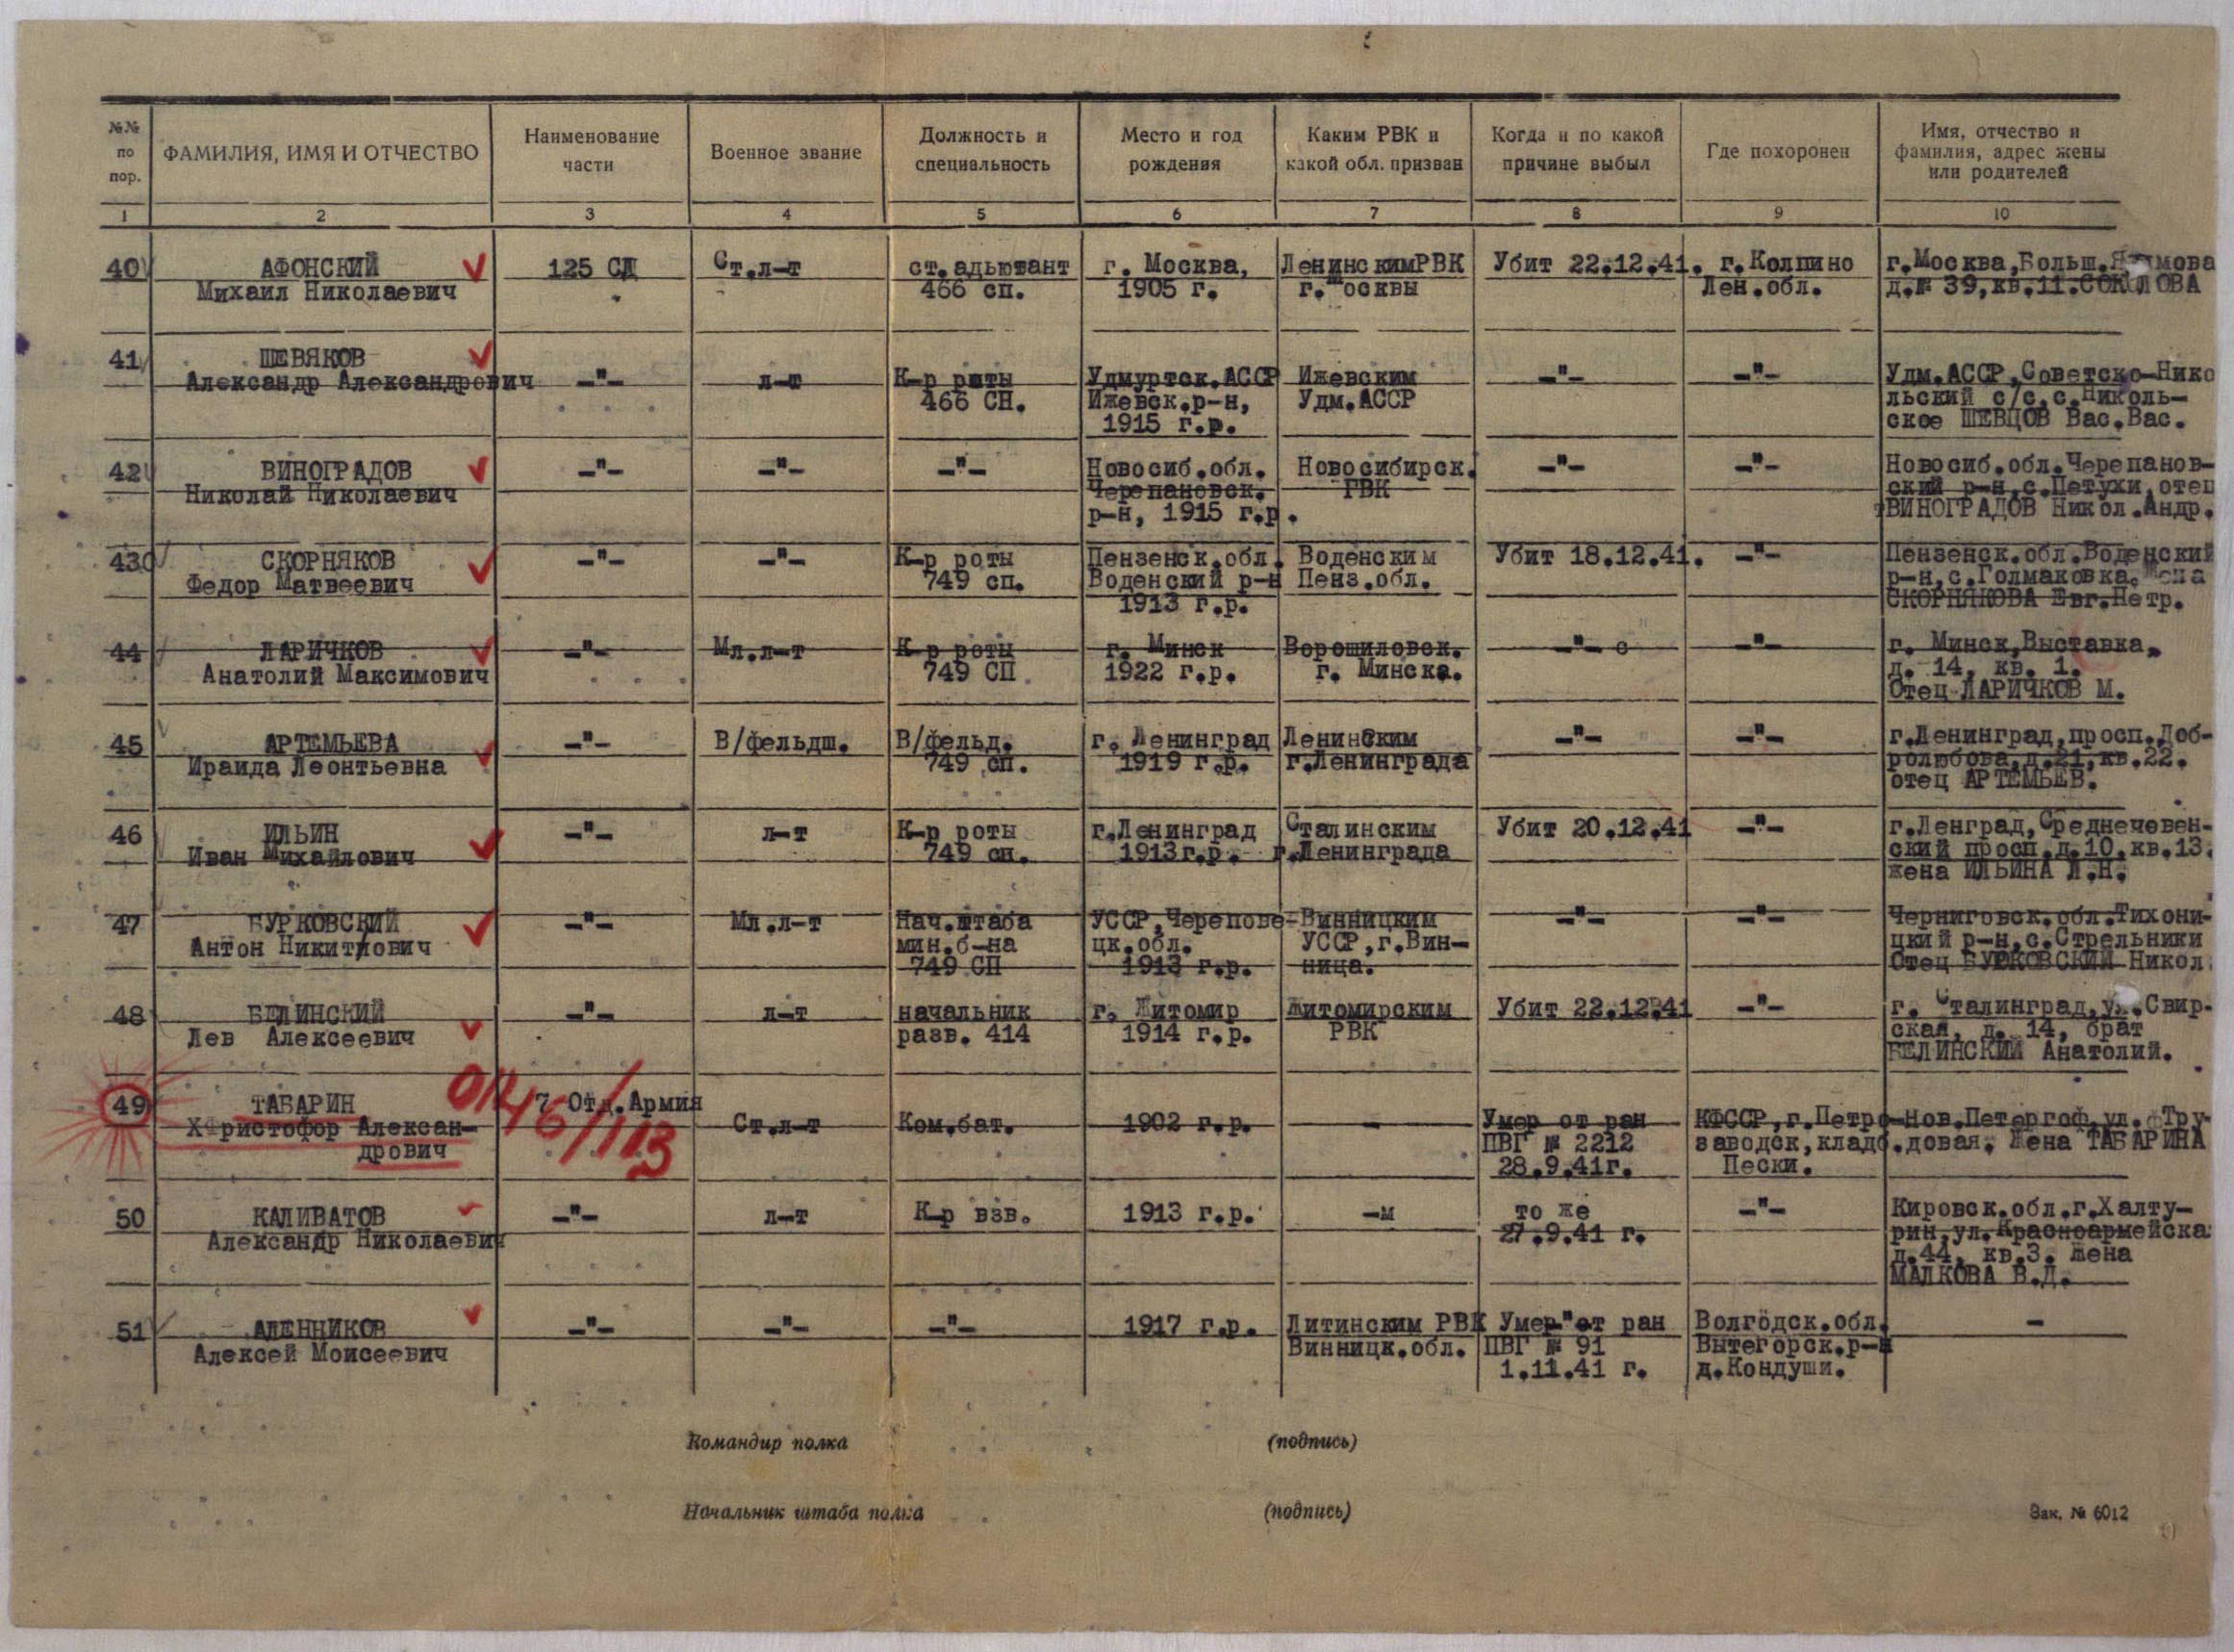 №№ по пор.
ФАМИЛИЯ, ИМЯ И ОТЧЕСТВО
Наименование части
Военное звание
Должность и специальность
Место и год рождения
Каким РВК и какой обл. призван
Когда и по какой причине выбыл
Где похоронен
Имя, отчество и фамилия, адрес жены или родителей
1 2 3 4 5 6 7 8 9 10
40 АФОНСКИЙ 125 СД Ст.л-т ст.адьютант г. Москва, ЛенинскимРВК Убит 22.12.41. г.Колпино г.Москва,Больш.
Михаил Николаевич 466 сп. 1905 г. г.Москвы Лен.обл. д.№ 39,кв.11.СОКОЛОВА
41 ШЕВЯКОВ
Александр Александрович -"- л-т К-р роты Удмуртск.АССР Ижевским -"- -"- Удм.АССР,Советско-Нико
466 СП. Ижевск.р-н, Удм.АССР льский с/с,с.Николь-
1915 г.р. ское ШЕВЦОВ Вас.Вас.
42 ВИНОГРАДОВ -"- -"- -"- Новосиб.обл. Новосибирск. -"- -"- Новосиб.обл.Черепанов-
Николай Николаевич Черепановск. РВК ский р-н,с.Петухи,отец
р-н, 1915 г.р. ВИНОГРАДОВ Никол.Андр.
43 СКОРНЯКОВ -"- -"- К-р роты Пензенск.обл. Воденским Убит 18.12.41. -"- Пензенск.обл.Воденский
Федор Матвеевич 749 сп. Воденский р-н Пенз.обл. р-н,с.Голмаковка.Жена
1913 г.р. СКОРНЯКОВА Евг.Петр.
44 ЛАРИЧКОВ -"- Мл.л-т К-р роты г. Минск Ворошиловск. -"- с -"- г. Минск,Выставка,
Анатолий Максимович 749 СП 1922 г.р. г. Минска. д. 14, кв. 1.
Отец ЛАРИЧКОВ М.
45 АРТЕМЬЕВА -"- В/фельдш. В/фельд. г. Ленинград Ленинским -"- -"- г.Ленинград,просп.Доб-
Ираида Леонтьевна 749 сп. 1919 г.р. г.Ленинграда ролюбова,д.21,кв.22.
отец АРТЕМЬЕВ.
46 ИЛЬИН -"- л-т К-р роты г.Ленинград Сталинским Убит 20.12.41 -"- г.Ленград,Среднечевен-
Иван Михайлович 749 сп. 1913г.р. г.Ленинграда ский просп.д.10,кв.13.
жена ИЛЬИНА Л.Н.
47 БУРКОВСКИЙ -"- Мл.л-т Нач.штаба УССР,Черепове- Винницким -"- -"- Черниговск.обл.Тихони-
Антон Никитович мин.б-на цк.обл. УССР,г.Вин- цкий р-н,с.Стрельники
749 СП 1913 г.р. ница. Отец БУРКОВСКИЙ Никол.
48 БЕЛИНСКИЙ -"- л-т начальник г. Житомир Житомирским Убит 22.12.41 -"- г. Сталинград,ул.Свир-
Лев Алексеевич разв. 414 1914 г.р. РВК ская, д. 14, брат
БЕЛИНСКИЙ Анатолий.
49 ТАБАРИН 7 Отд.Армия
Христофор Алексан- Ст.л-т Ком.бат. 1902 г.р. - Умер от ран КФССР,г.Петро- Нов.Петергоф,ул. Тру-
дрович ПВГ № 2212 заводск,кладб. довая. Жена ТАБАРИНА
28.9.41г. Пески.
50 КАЛИВАТОВ -"- л-т К-р взв. 1913 г.р. -м то же -"- Кировск.обл.г.Халту-
Александр Николаевич 27.9.41 г. рин,ул.Красноармейска
д.44, кв.3. Жена
МАЛКОВА В.Д.
51 АЛЕННИКОВ -"- -"- -"- 1917 г.р. Литинским РВК Умер от ран Волгодск.обл. -
Алексей Моисеевич Винницк.обл. ПВГ № 91 Вытегорск.р-н
1.11.41 г. д.Кондуши.
Командир полка (подпись)
Начальник штаба полка (подпись)
Зак. № 6012